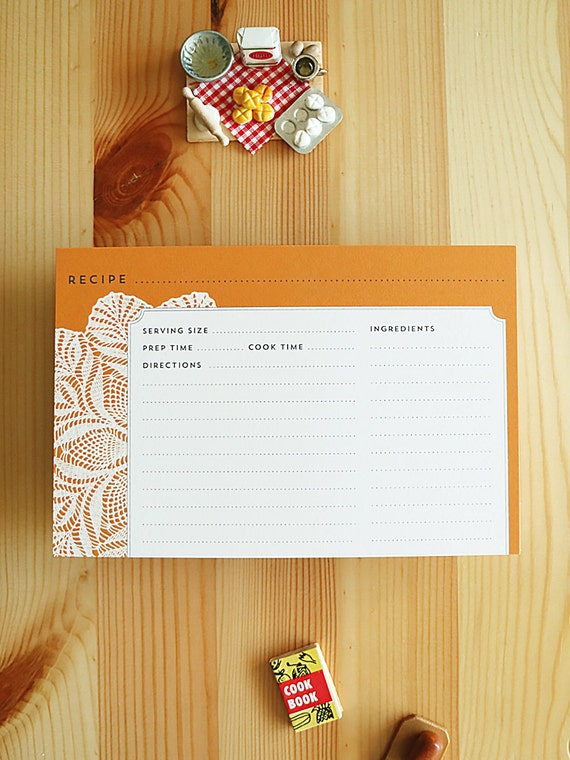 RECIPE
SERVING SIZE
INGREDIENTS
PREP TIME COOK TIME
DIRECTIONS
COOK
BOOK